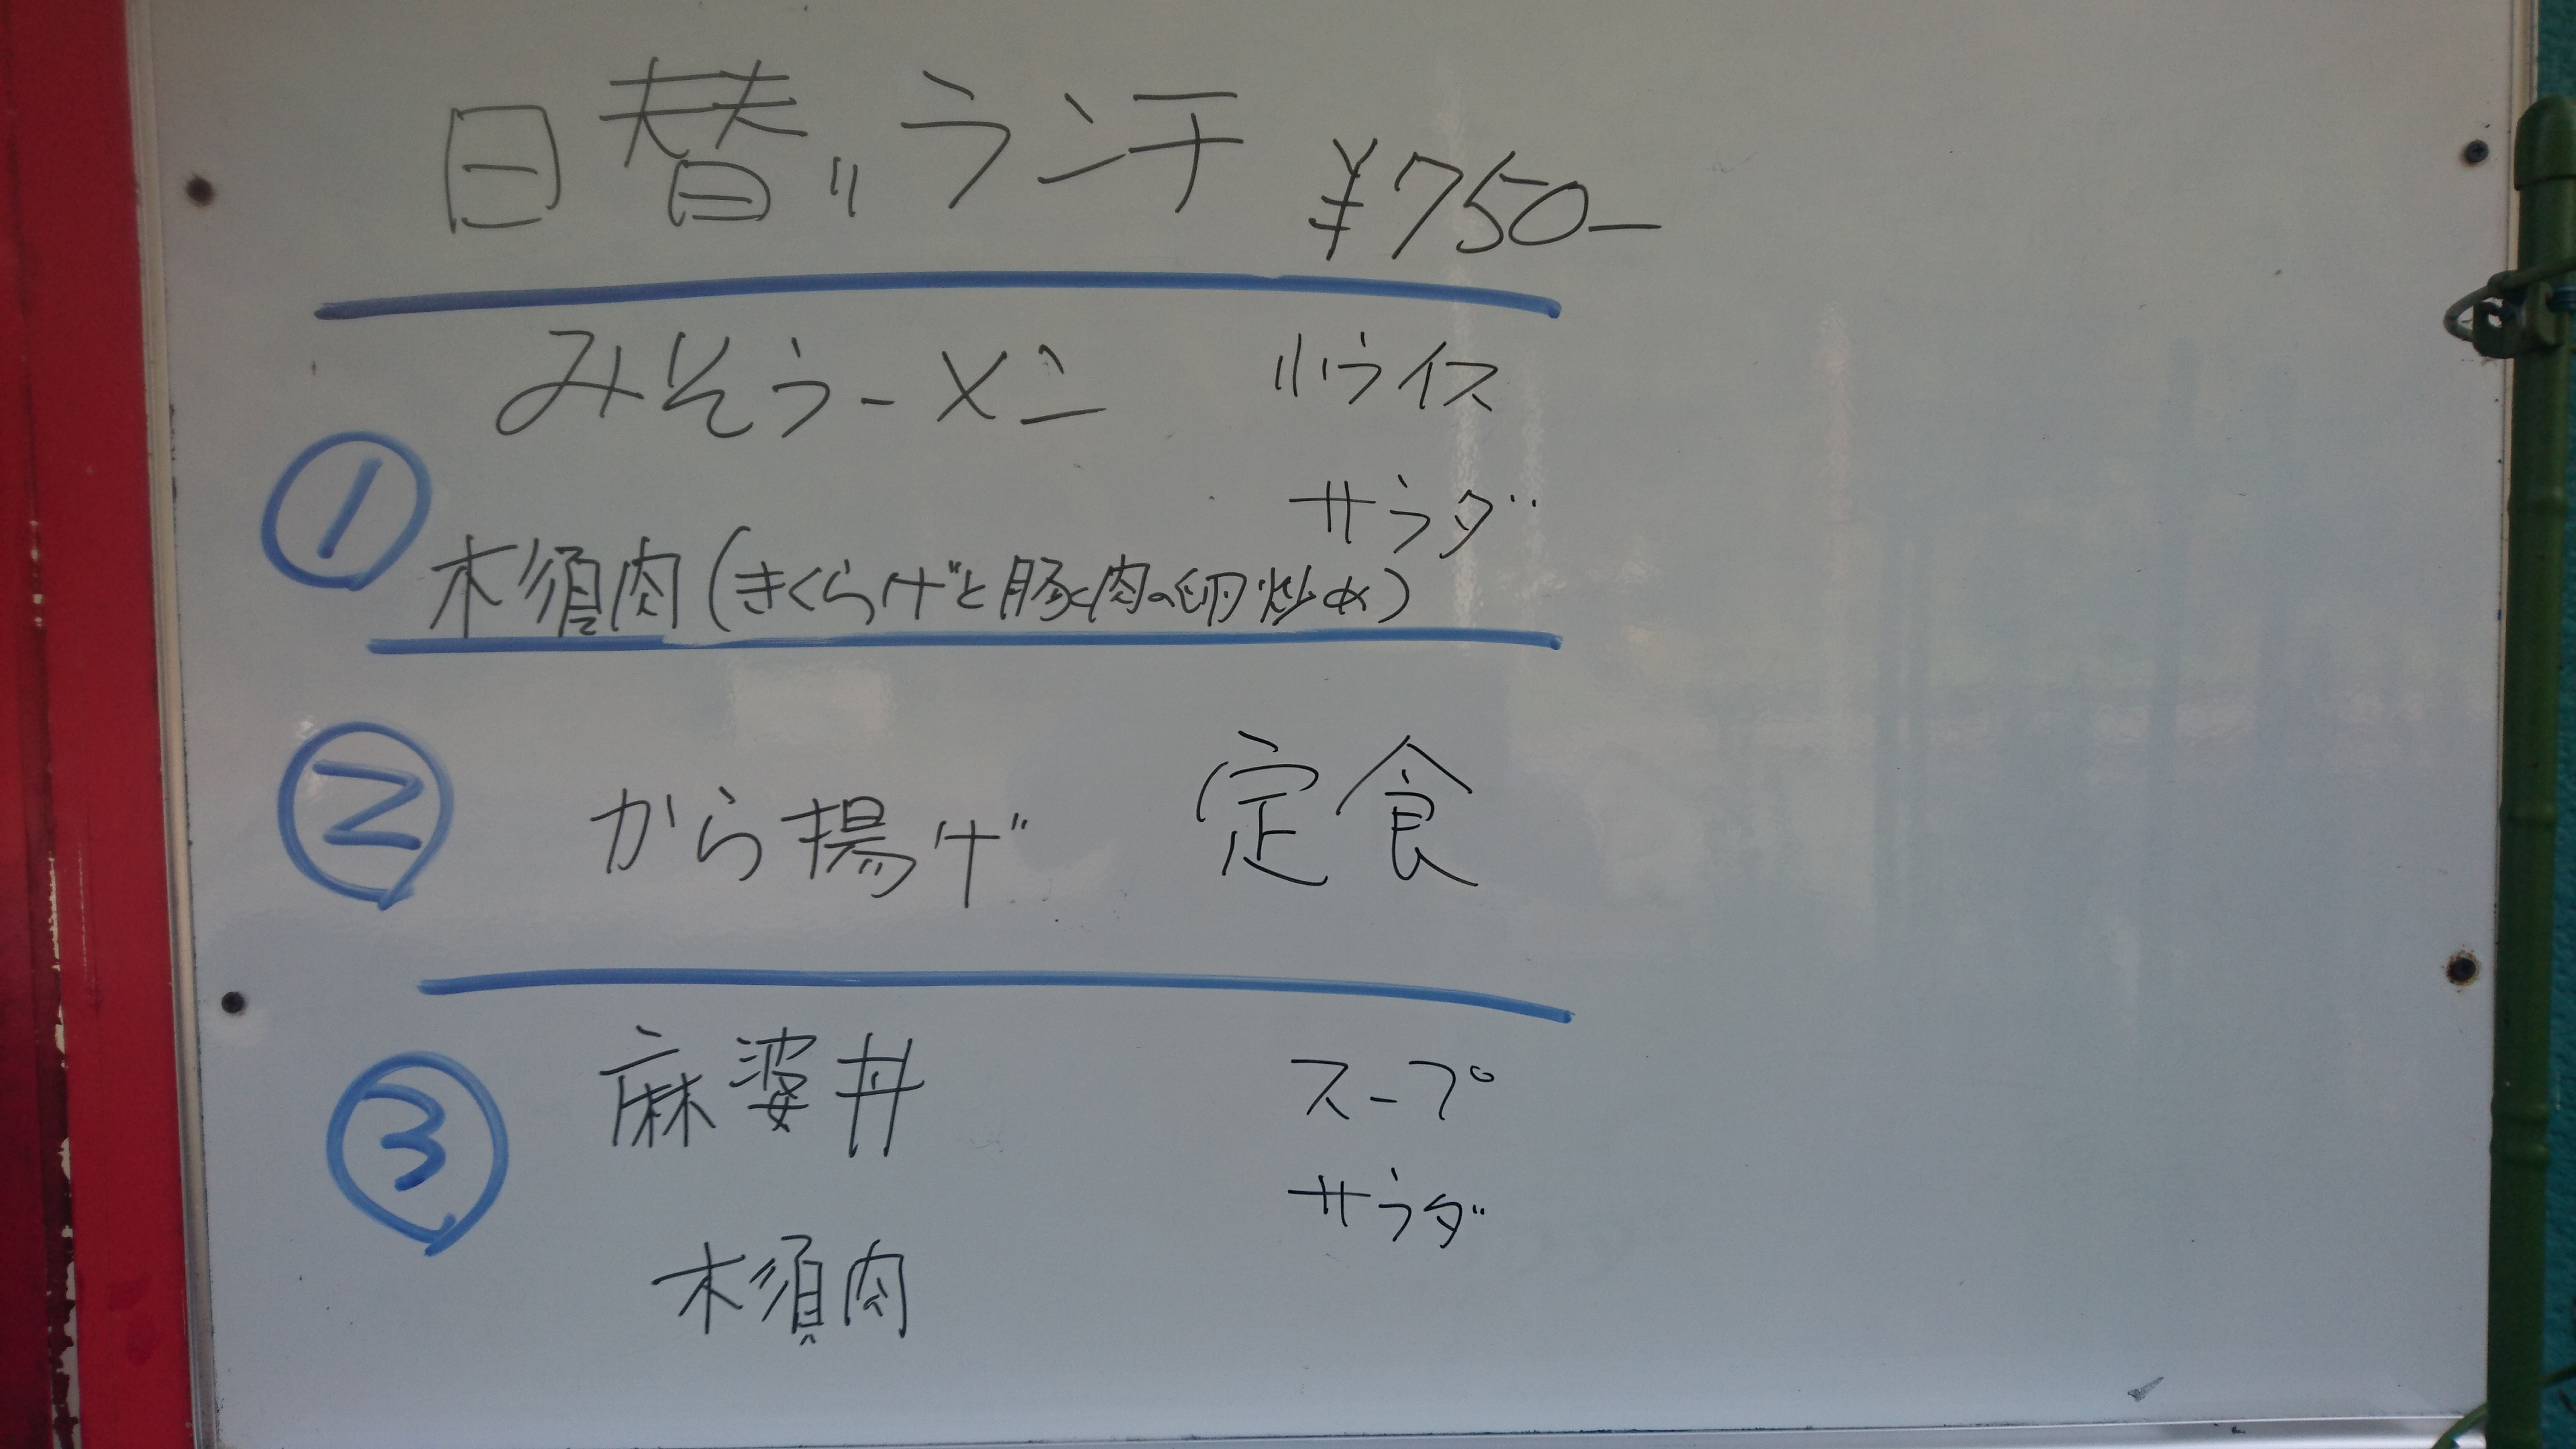 日替りランチ ¥750-
みそラーメン 小ライス
① サラダ
木須肉(きくらげと豚肉の卵炒め)
② から揚げ 定食
③ 麻婆丼 スープ
サラダ
木須肉